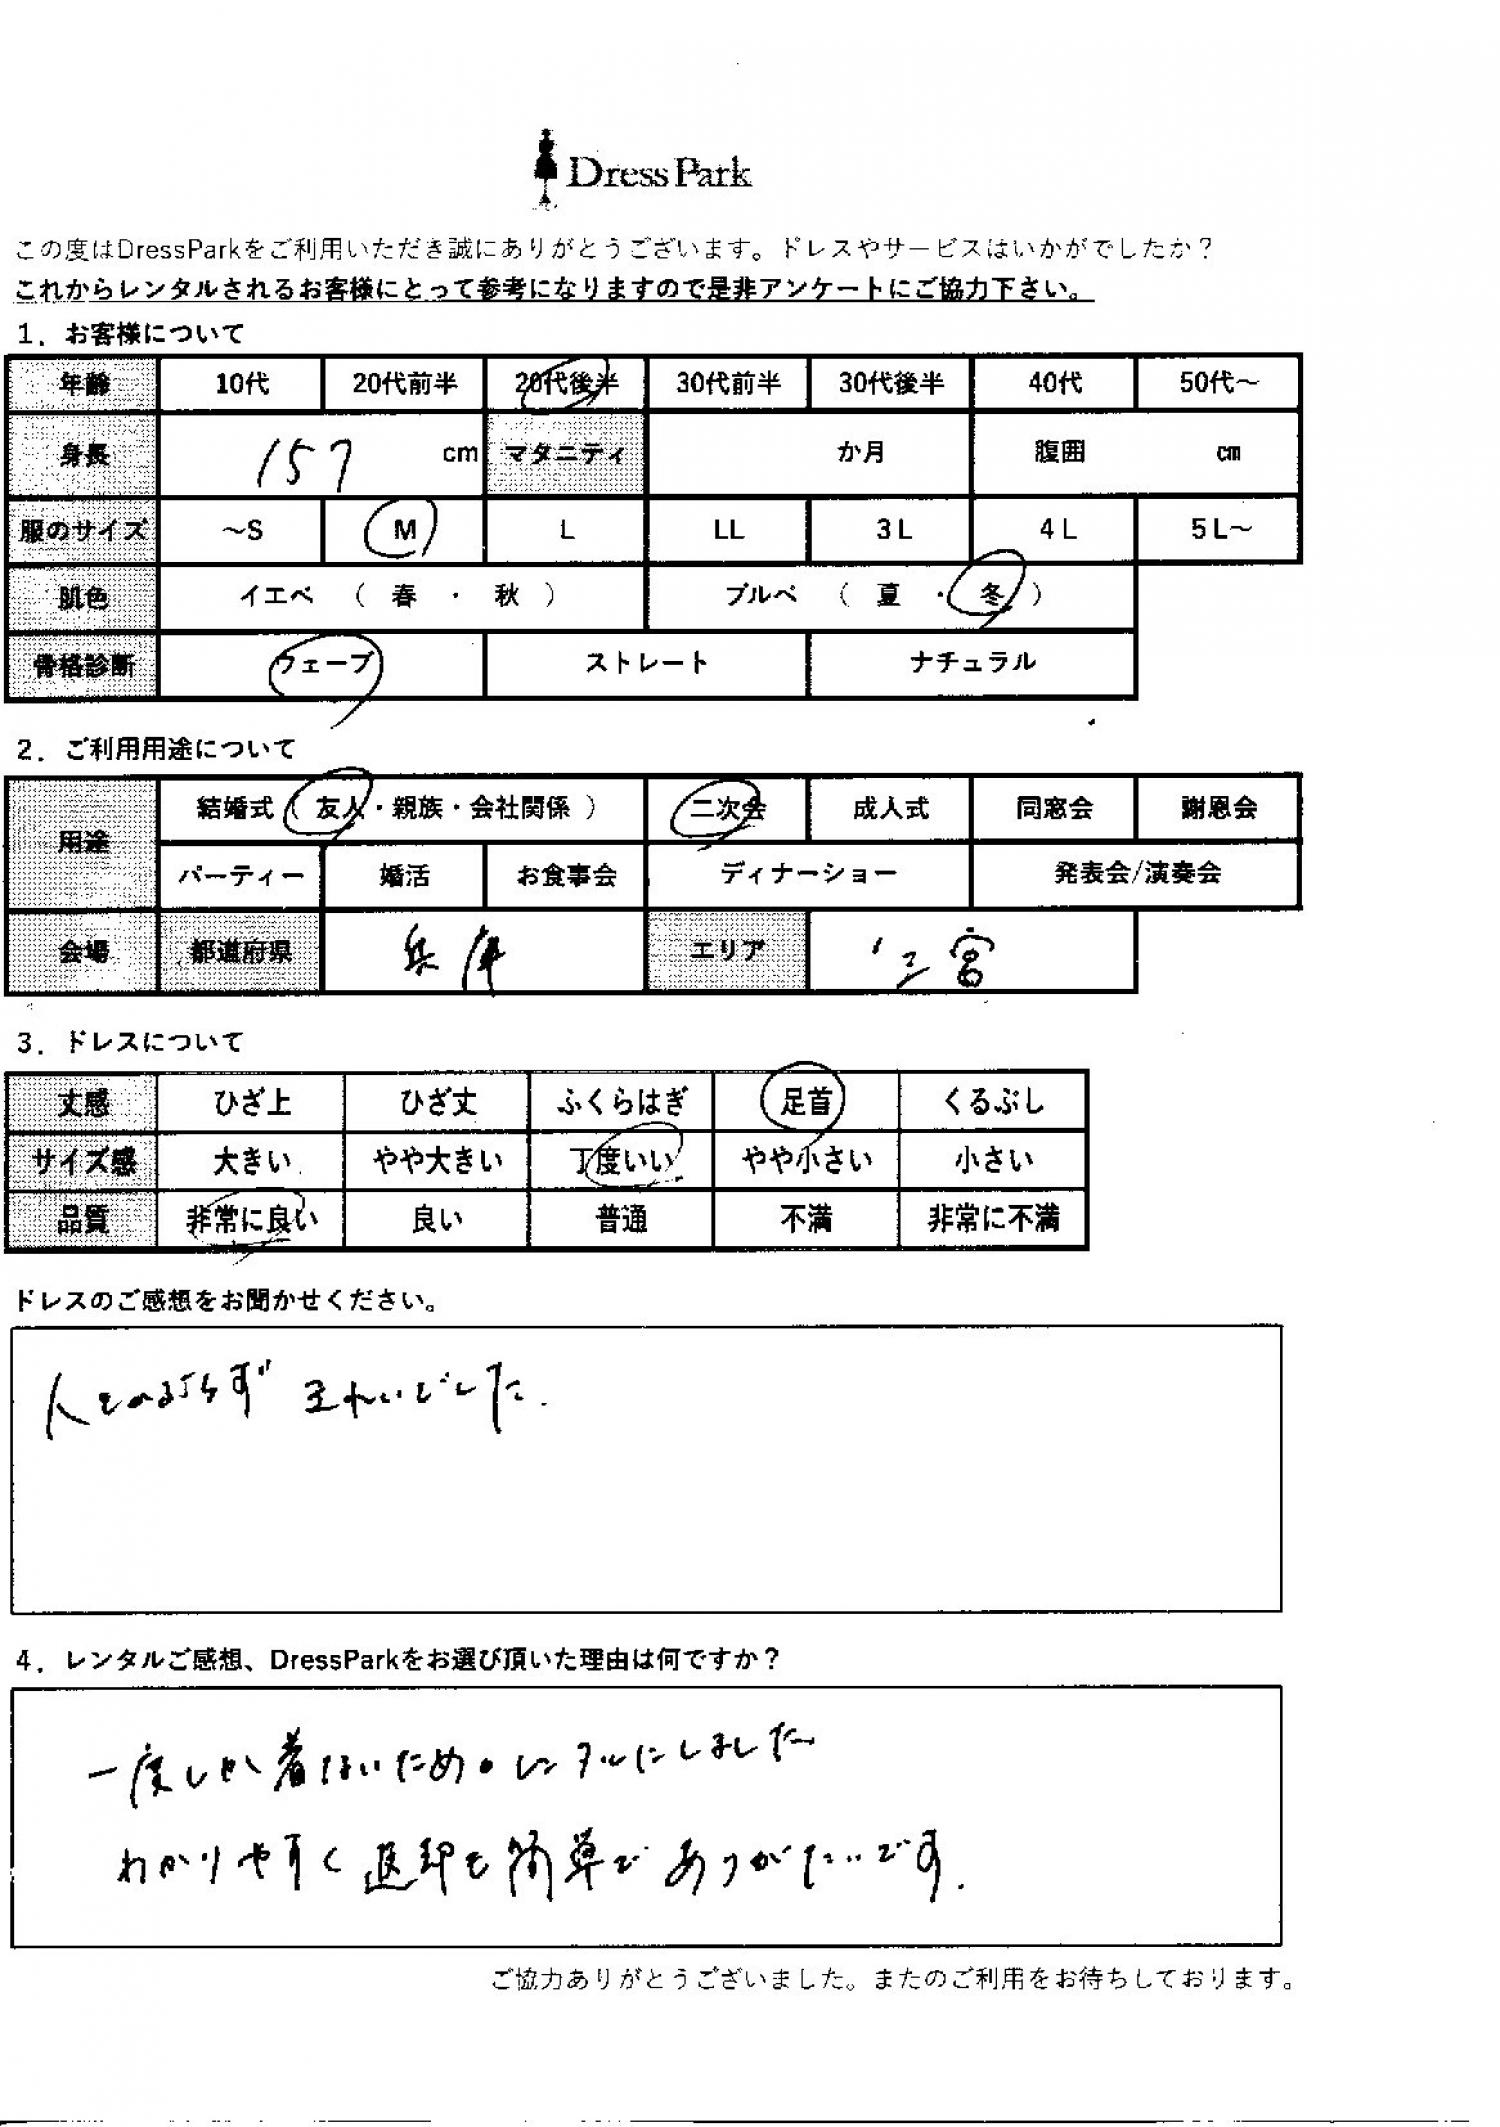 Dress Park
この度はDressParkをご利用いただき誠にありがとうございます。ドレスやサービスはいかがでしたか？
これからレンタルされるお客様にとって参考になりますので是非アンケートにご協力下さい。
1．お客様について
年齢 10代 20代前半 20代後半 30代前半 30代後半 40代 50代～
身長 157 cm マタニティ か月 腹囲 cm
服のサイズ ～S M L LL 3L 4L 5L～
肌色 イエベ （ 春 ・ 秋 ） ブルベ （ 夏 ・ 冬 ）
骨格診断 ウェーブ ストレート ナチュラル
2．ご利用用途について
用途 結婚式（ 友人・親族・会社関係 ） 二次会 成人式 同窓会 謝恩会
パーティー 婚活 お食事会 ディナーショー 発表会/演奏会
会場 都道府県 兵庫 エリア 三宮
3．ドレスについて
丈感 ひざ上 ひざ丈 ふくらはぎ 足首 くるぶし
サイズ感 大きい やや大きい 丁度いい やや小さい 小さい
品質 非常に良い 良い 普通 不満 非常に不満
ドレスのご感想をお聞かせください。
人をえらばず きれいでした.
4．レンタルご感想、DressParkをお選び頂いた理由は何ですか？
一度しか着ないため。レンタルにしました
わかりやすく返却も簡単でありがたいです.
ご協力ありがとうございました。またのご利用をお待ちしております。